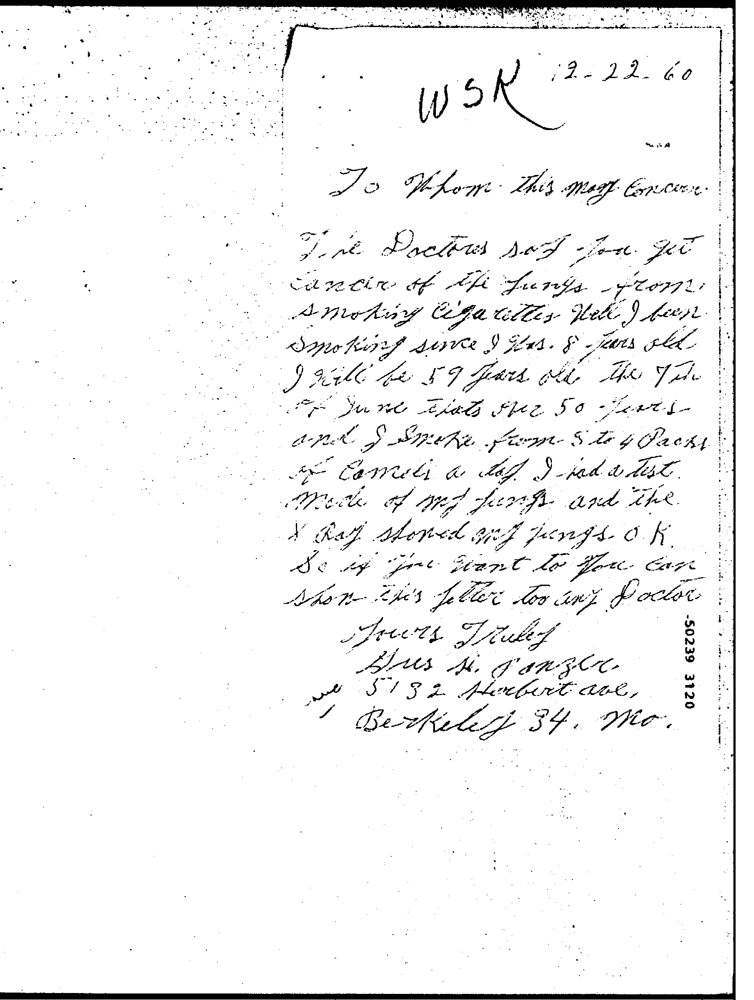 12-22-60
WSK
To Whom this may Concern
The Doctores say you get
Cancer of the Lungs from
smoking Cigarettes Well I been
Smoking since I Was 8 years old
I Will be 59 years old the 7th
of June thats over 50 years
and I Smoke from to 4 Packs
of Camels a day I had a test
Made of my Lungs and the
X Ray showed my Lungs O K
So if you Want to you can
show this Letter too any Doctor
Yours Truley
Gus
5132 Herbert ave,
Berkeley 34. Mo.
50239 3120